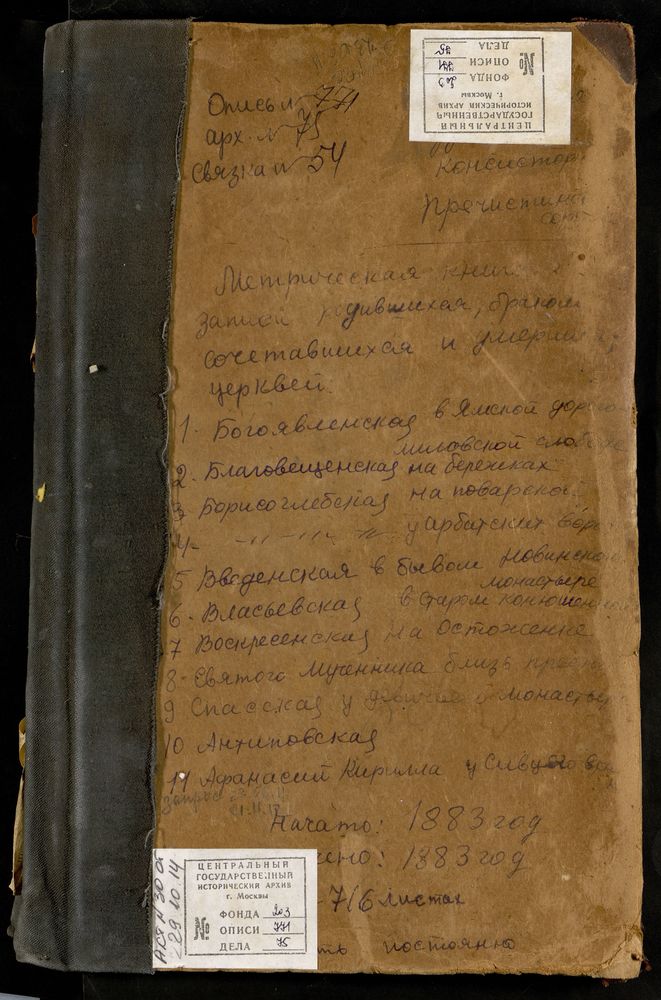 ЦЕНТРАЛЬНЫЙ
ГОСУДАРСТВЕННЫЙ
ИСТОРИЧЕСКИЙ АРХИВ
г. Москвы
№ ФОНДА 203
ОПИСИ 771
ДЕЛА 75
Опись № 771
арх. № 75
Связка № 54
Консистор
Пречистен
Метрическая книга
записи родившихся, браком
сочетавшихся и умерших,
церквей.
1. Богоявленская в Ямской дорого
миловской слободе
2. Благовещенская на бережках
3 Борисоглебская на поварской
4- -"- -"- -"- у Арбатских Ворот
5 Введенская в бывом Новинском
монастыре
6. Власьевская в Старом Конюшенной
7 Воскресенская на Остоженке
8- Святого Мученника близь
9 Спасская у монастыр
10 Антиповская
11 Афанасий Кирилла у Сивцего
Запрос
Начато: 1883 год
чено: 1883 год
716 листах
ть постоянно
ЦЕНТРАЛЬНЫЙ
ГОСУДАРСТВЕННЫЙ
ИСТОРИЧЕСКИЙ АРХИВ
г. Москвы
№ ФОНДА 203
ОПИСИ 771
ДЕЛА 75